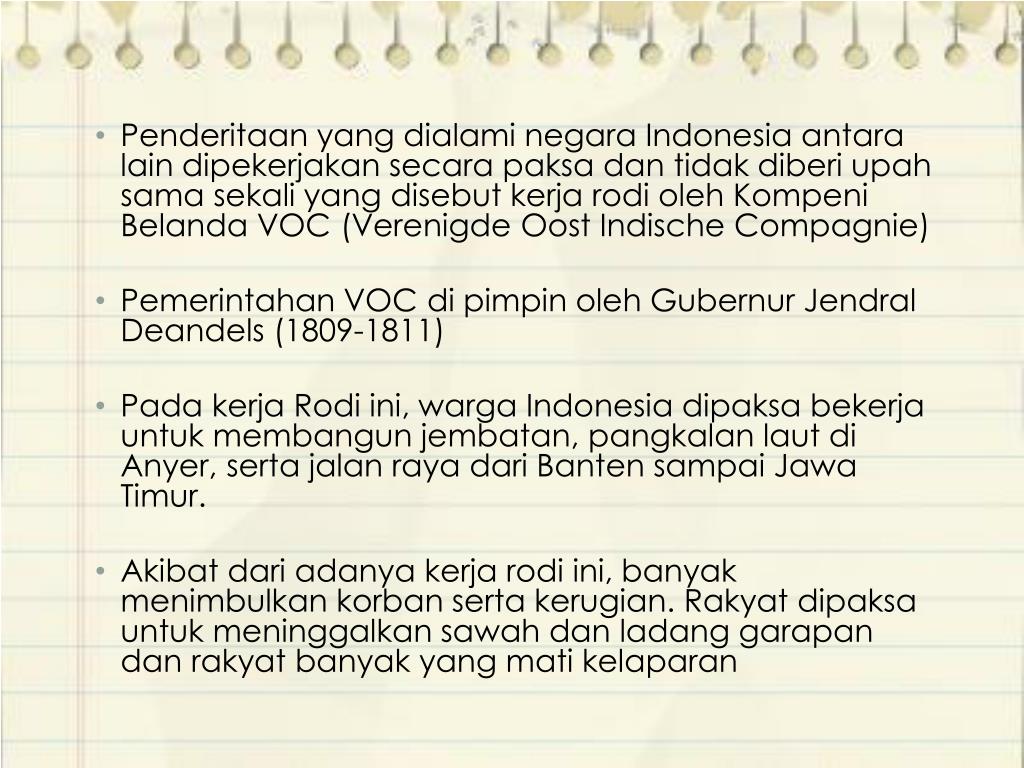 • Penderitaan yang dialami negara Indonesia antara
lain dipekerjakan secara paksa dan tidak diberi upah
sama sekali yang disebut kerja rodi oleh Kompeni
Belanda VOC (Verenigde Oost Indische Compagnie)
• Pemerintahan VOC di pimpin oleh Gubernur Jendral
Deandels (1809-1811)
• Pada kerja Rodi ini, warga Indonesia dipaksa bekerja
untuk membangun jembatan, pangkalan laut di
Anyer, serta jalan raya dari Banten sampai Jawa
Timur.
• Akibat dari adanya kerja rodi ini, banyak
menimbulkan korban serta kerugian. Rakyat dipaksa
untuk meninggalkan sawah dan ladang garapan
dan rakyat banyak yang mati kelaparan